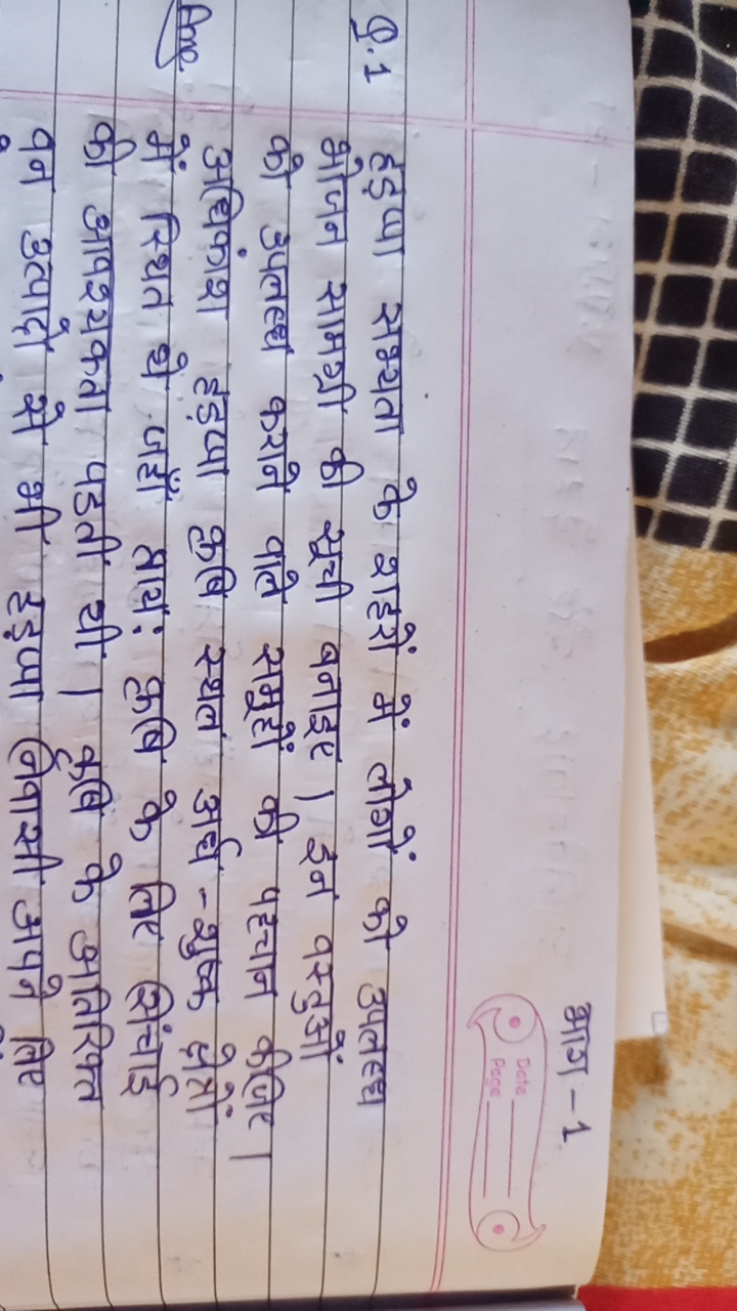 भाग - 1
Date
Page
प्र.1 हड़प्पा सभ्यता के शहरों में लोगों को उपलब्ध
भोजन सामग्री की सूची बनाइए। इन वस्तुओं
को उपलब्ध कराने वाले समूहों की पहचान कीजिए।
Ans अधिकांश हड़प्पा कृषि स्थल अर्ध-शुष्क क्षेत्रों
में स्थित थे जहाँ प्राय: कृषि के लिए सिंचाई
की आवश्यकता पड़ती थी। कृषि के अतिरिक्त
वन उत्पादों से भी हड़प्पा निवासी अपने लिए